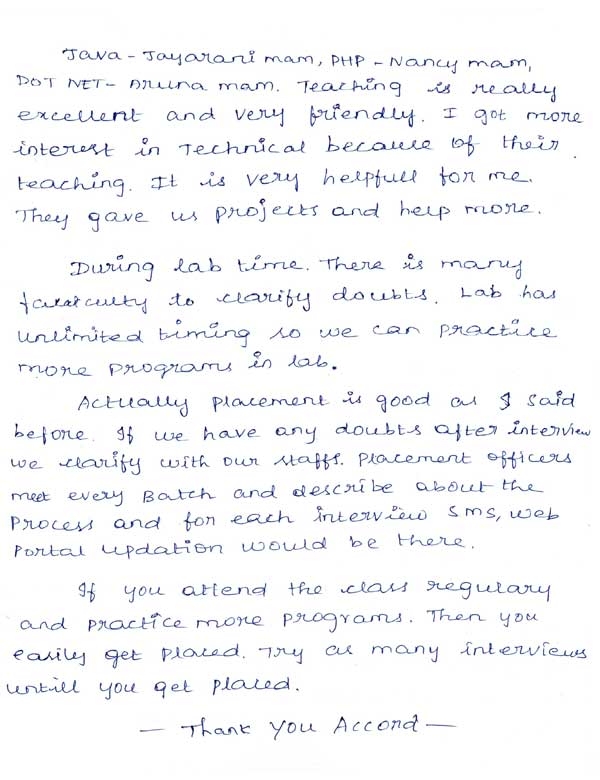 Java - Jayarani mam, PHP - Nancy mam,
DOT NET - Aruna mam. Teaching is really
excellent and very friendly. I got more
interest in Technical because of their
teaching. It is very helpfull for me.
They gave us projects and help more.
During lab time. There is many
to clarify doubts. Lab has
unlimited timing so we can practice
more programs in lab.
Actually placement is good as I said
before. If we have any doubts after interview
we clarify with our staffs. Placement officers
meet every Batch and describe about the
Process and for each interview SMS, web
Portal updation would be there.
If you attend the class regulary
and practice more programs. Then you
easily get placed. Try as many interviews
untill you get placed.
— Thank You Accord —